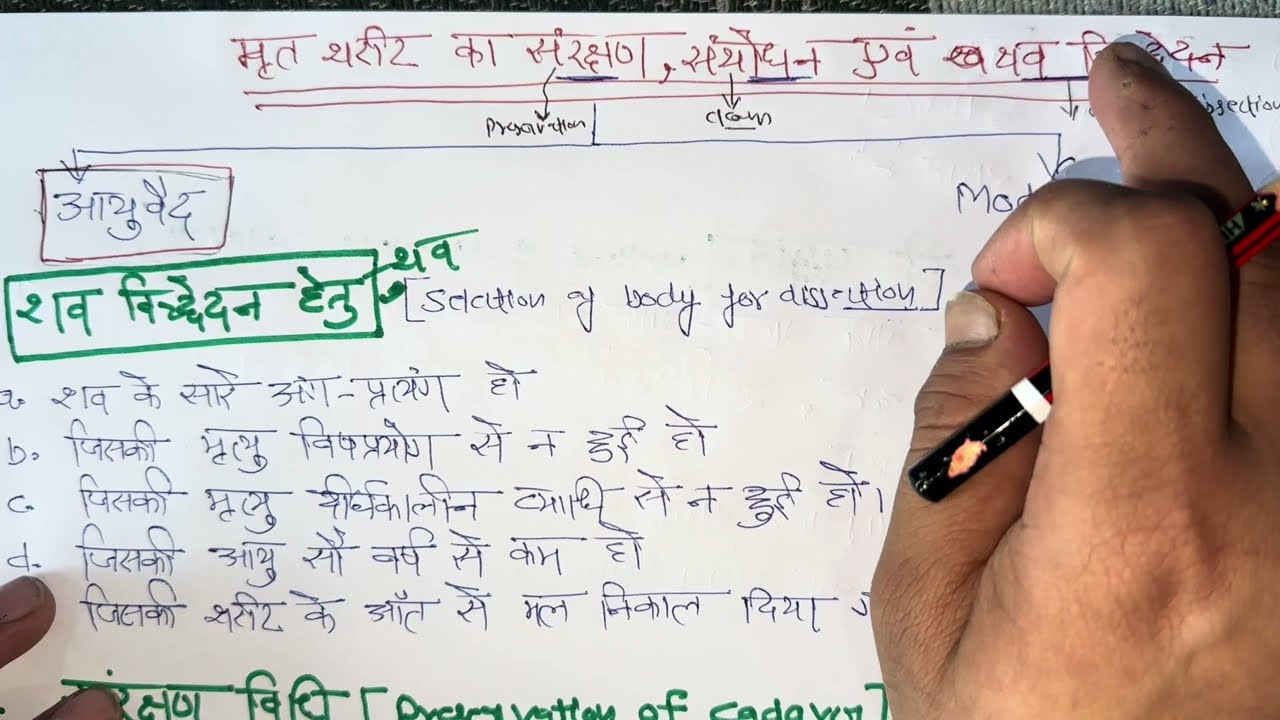 मृत शरीर का संरक्षण, संशोधन एवं शव
Presarvation clean
आयुर्वेद
शव विच्छेदन हेतु शव [Selection of body for dissection]
a. शव के सारे अंग-प्रत्यंग हो
b. जिसकी मृत्यु विषप्रयोग से न हुई हो
c. जिसकी मृत्यु दीर्घकालीन व्याधि से न हुई हो।
d. जिसकी आयु सौ वर्ष से कम हो
जिसकी शरीर के आँत से मल निकाल दिया
संरक्षण विधि [Preservation of cadaver]